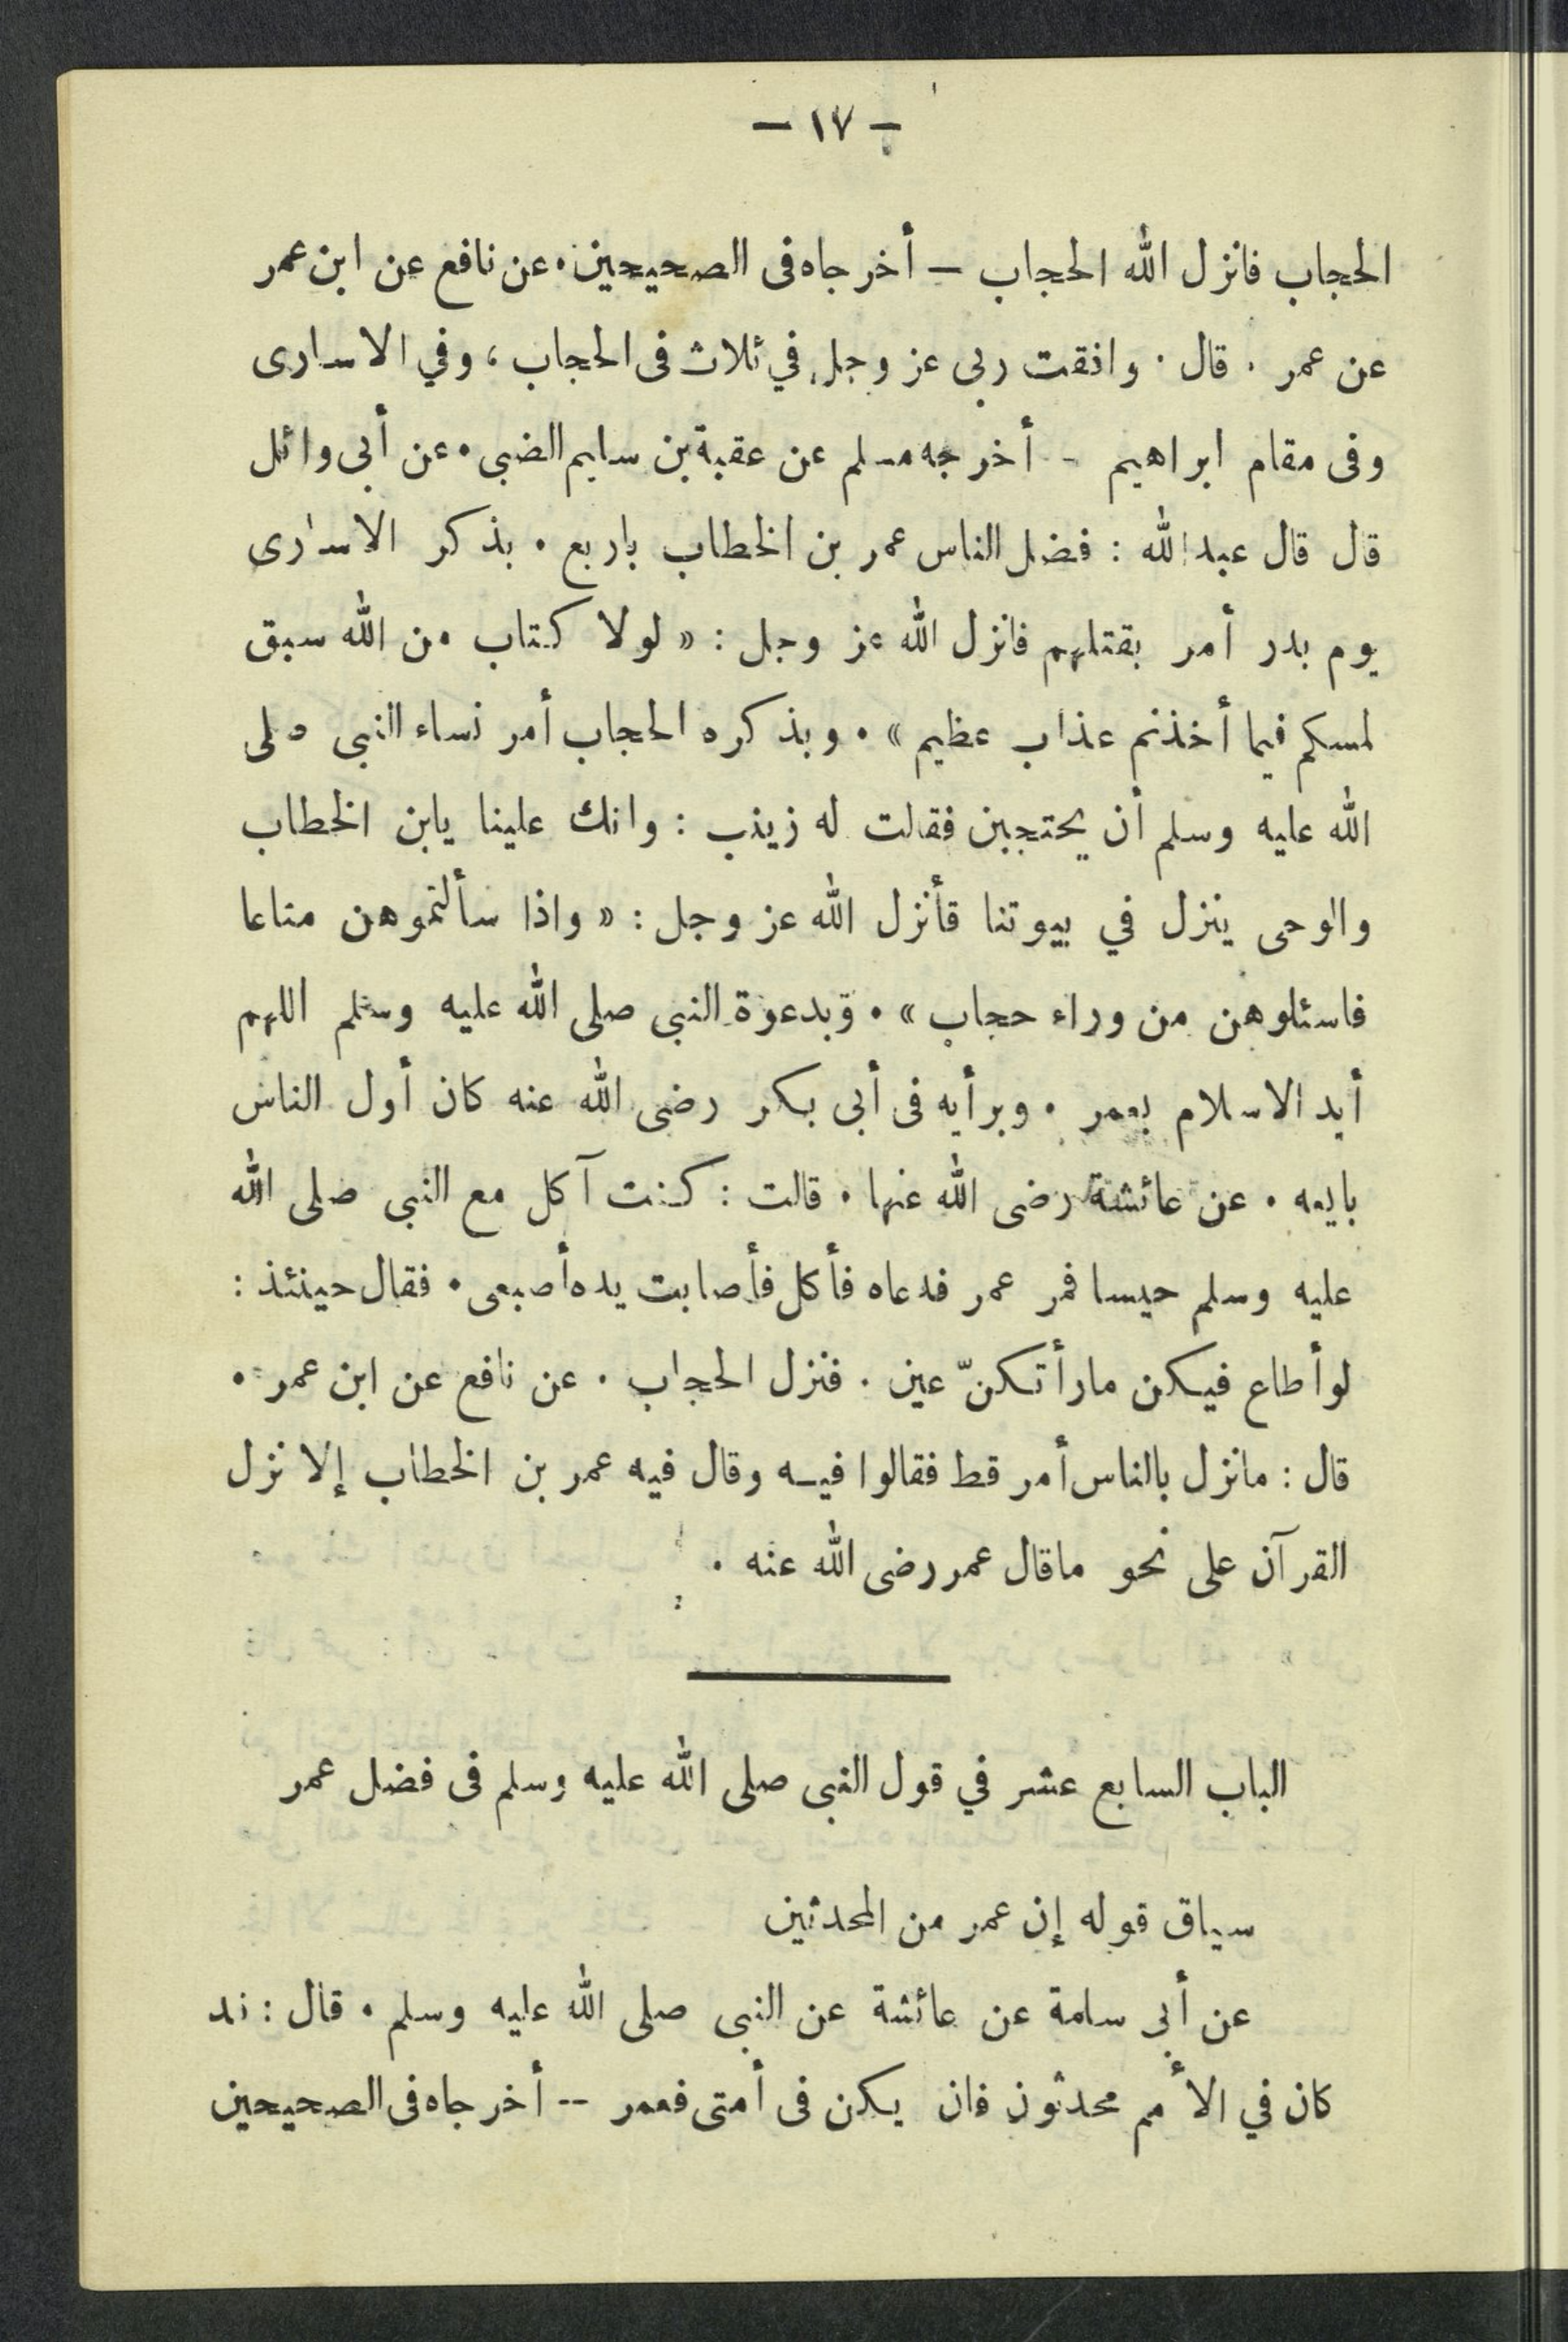 - ١٧ -
الحجاب فانزل الله الحجاب - أخرجاه فى الصحيحين . عن نافع عن ابن عمر
عن عمر . قال . وافقت ربى عز وجل في ثلاث فى الحجاب ، وفي الاسارى
وفى مقام ابراهيم - أخرجه مسلم عن عقبة بن سليم الضبى . عن أبى وائل
قال قال عبد الله : فضل الناس عمر بن الخطاب باربع . بذكر الاسارى
يوم بدر أمر بقتلهم فانزل الله عز وجل : « لولا كتاب من الله سبق
لمسكم فيما أخذتم عذاب عظيم » . وبذكره الحجاب أمر نساء النبى صلى
الله عليه وسلم أن يحتجبن فقالت له زينب : وانك علينا يابن الخطاب
والوحى ينزل في بيوتنا فأنزل الله عز وجل : « واذا سألتموهن متاعا
فاسئلوهن من وراء حجاب » . وبدعوة النبى صلى الله عليه وسلم اللهم
أيد الاسلام بعمر . وبرأيه فى أبى بكر رضى الله عنه كان أول الناس
بايعه . عن عائشة رضى الله عنها . قالت : كنت آكل مع النبى صلى الله
عليه وسلم حيسا فمر عمر فدعاه فأكل فأصابت يده أصبعى . فقال حينئذ :
لو أطاع فيكن مارأتكنّ عين . فنزل الحجاب . عن نافع عن ابن عمر .
قال : مانزل بالناس أمر قط فقالوا فيه وقال فيه عمر بن الخطاب إلا نزل
القرآن على نحو ماقال عمر رضى الله عنه .
الباب السابع عشر في قول النبى صلى الله عليه وسلم فى فضل عمر
سياق قوله إن عمر من المحدثين
عن أبى سلمة عن عائشة عن النبى صلى الله عليه وسلم . قال : قد
كان في الأمم محدثون فان يكن فى أمتى فعمر -- أخرجاه فى الصحيحين